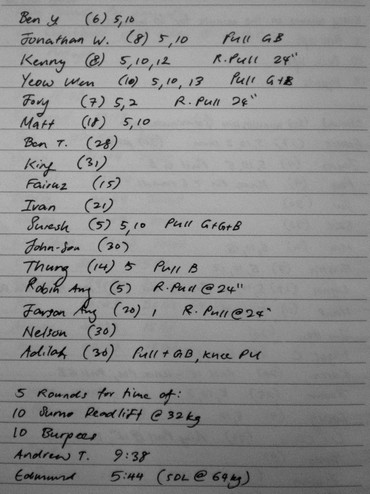 Ben Y (6) 5,10
Jonathan W. (8) 5,10 Pull GB
Kenny (8) 5,10,12 R.Pull 24"
Yeow Wen (10) 5,10,13 Pull G+B
(7) 5,2 R.Pull 24"
Matt (18) 5,10
Ben T. (28)
King (31)
Fairuz (15)
Ivan (21)
Suresh (5) 5,10 Pull G+G+B
John-Son (30)
Thung (14) 5 Pull B
Robin Ang (5) R.Pull @ 24"
Ang (20) 1 R.Pull @ 24"
Nelson (30)
Adilah (30) Pull + GB, knee PU
5 Rounds for time of:
10 Sumo Deadlift @ 32kg
10 Burpees
Andrew T. 9:38
Edmund 5:44 (SDL @ 64kg)